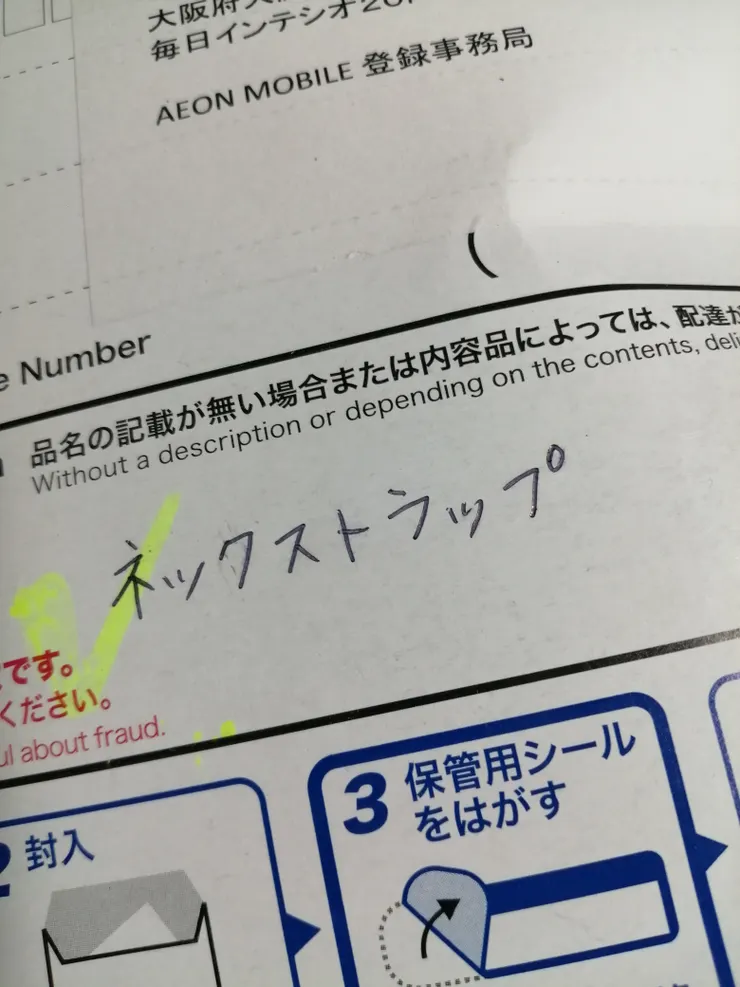 大阪府
毎日インテシオ20F
AEON MOBILE 登録事務局
(
Number
品名の記載が無い場合または内容品によっては、配達が
Without a description or depending on the contents,
ネックストラップ
です。
ください。
about fraud.
2 封入
3 保管用シール
をはがす